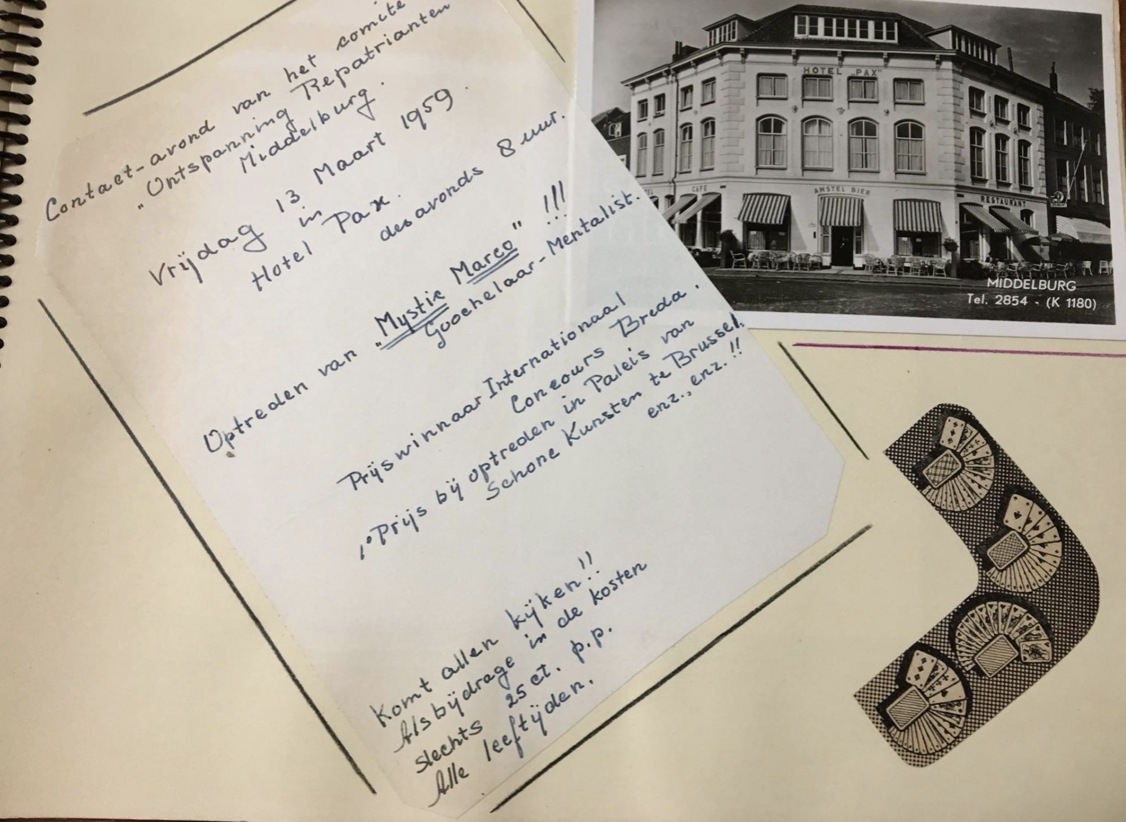 Contact-avond van het comité
"Ontspanning Repatrianten
Middelburg.
Vrijdag 13 Maart 1959.
in
Hotel Pax.
des avonds 8 uur.
Optreden van "Mystic Marco" !!!
Goochelaar-Mentalist.
Prijswinnaar Internationaal
Concours Breda.
1e Prijs bij optreden in Paleis van
Schone Kunsten te Brussel.
enz., enz.!!
Komt allen kijken!!
Als bijdrage in de kosten
slechts 25 ct. p.p.
Alle leeftijden.
HOTEL "PAX"
CAFÉ
AMSTEL BIER
RESTAURANT
MIDDELBURG
Tel. 2854 - (K 1180)